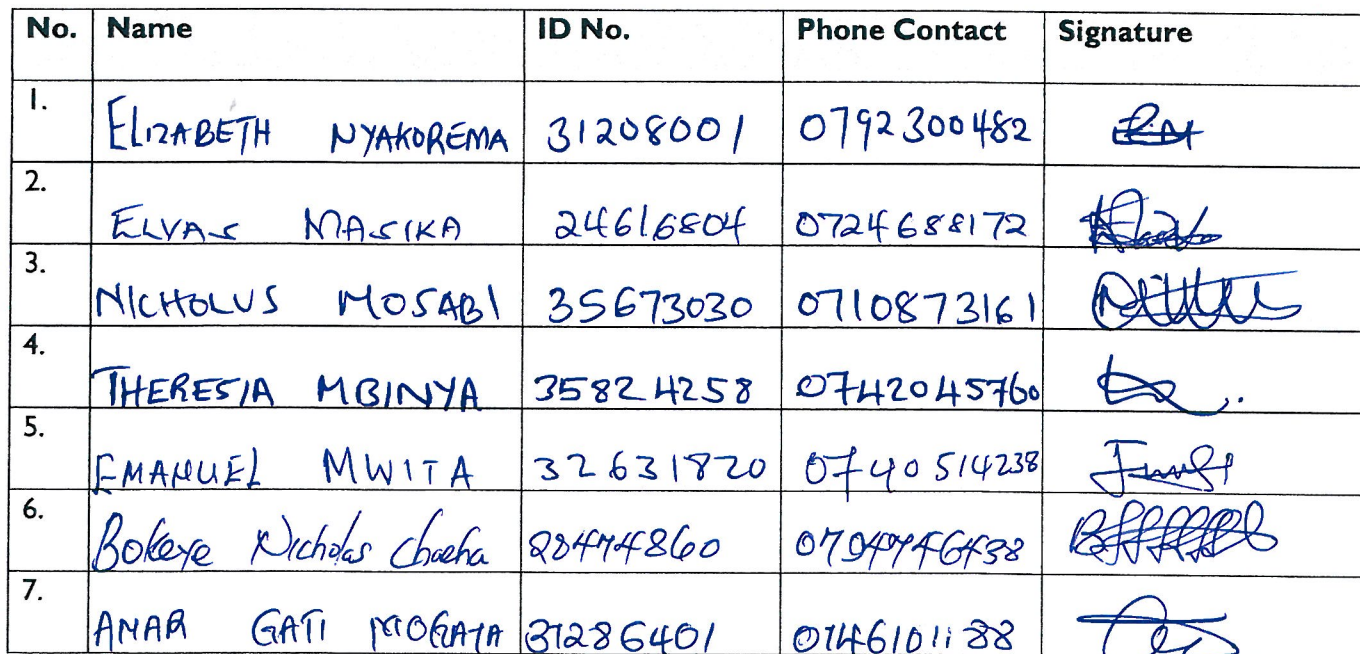 No. Name ID No. Phone Contact Signature
1. ELIZABETH NYAKOREMA 31208001 0792300482
2. ELVAS MASIKA 24616804 0724688172
3. NICHOLUS MOSABI 35673030 0710873161
4. THERESIA MBINYA 35824258 0742045760
5. EMANUEL MWITA 32631820 0740514238
6. Bokeye Nicholas Chacha
7. GATI